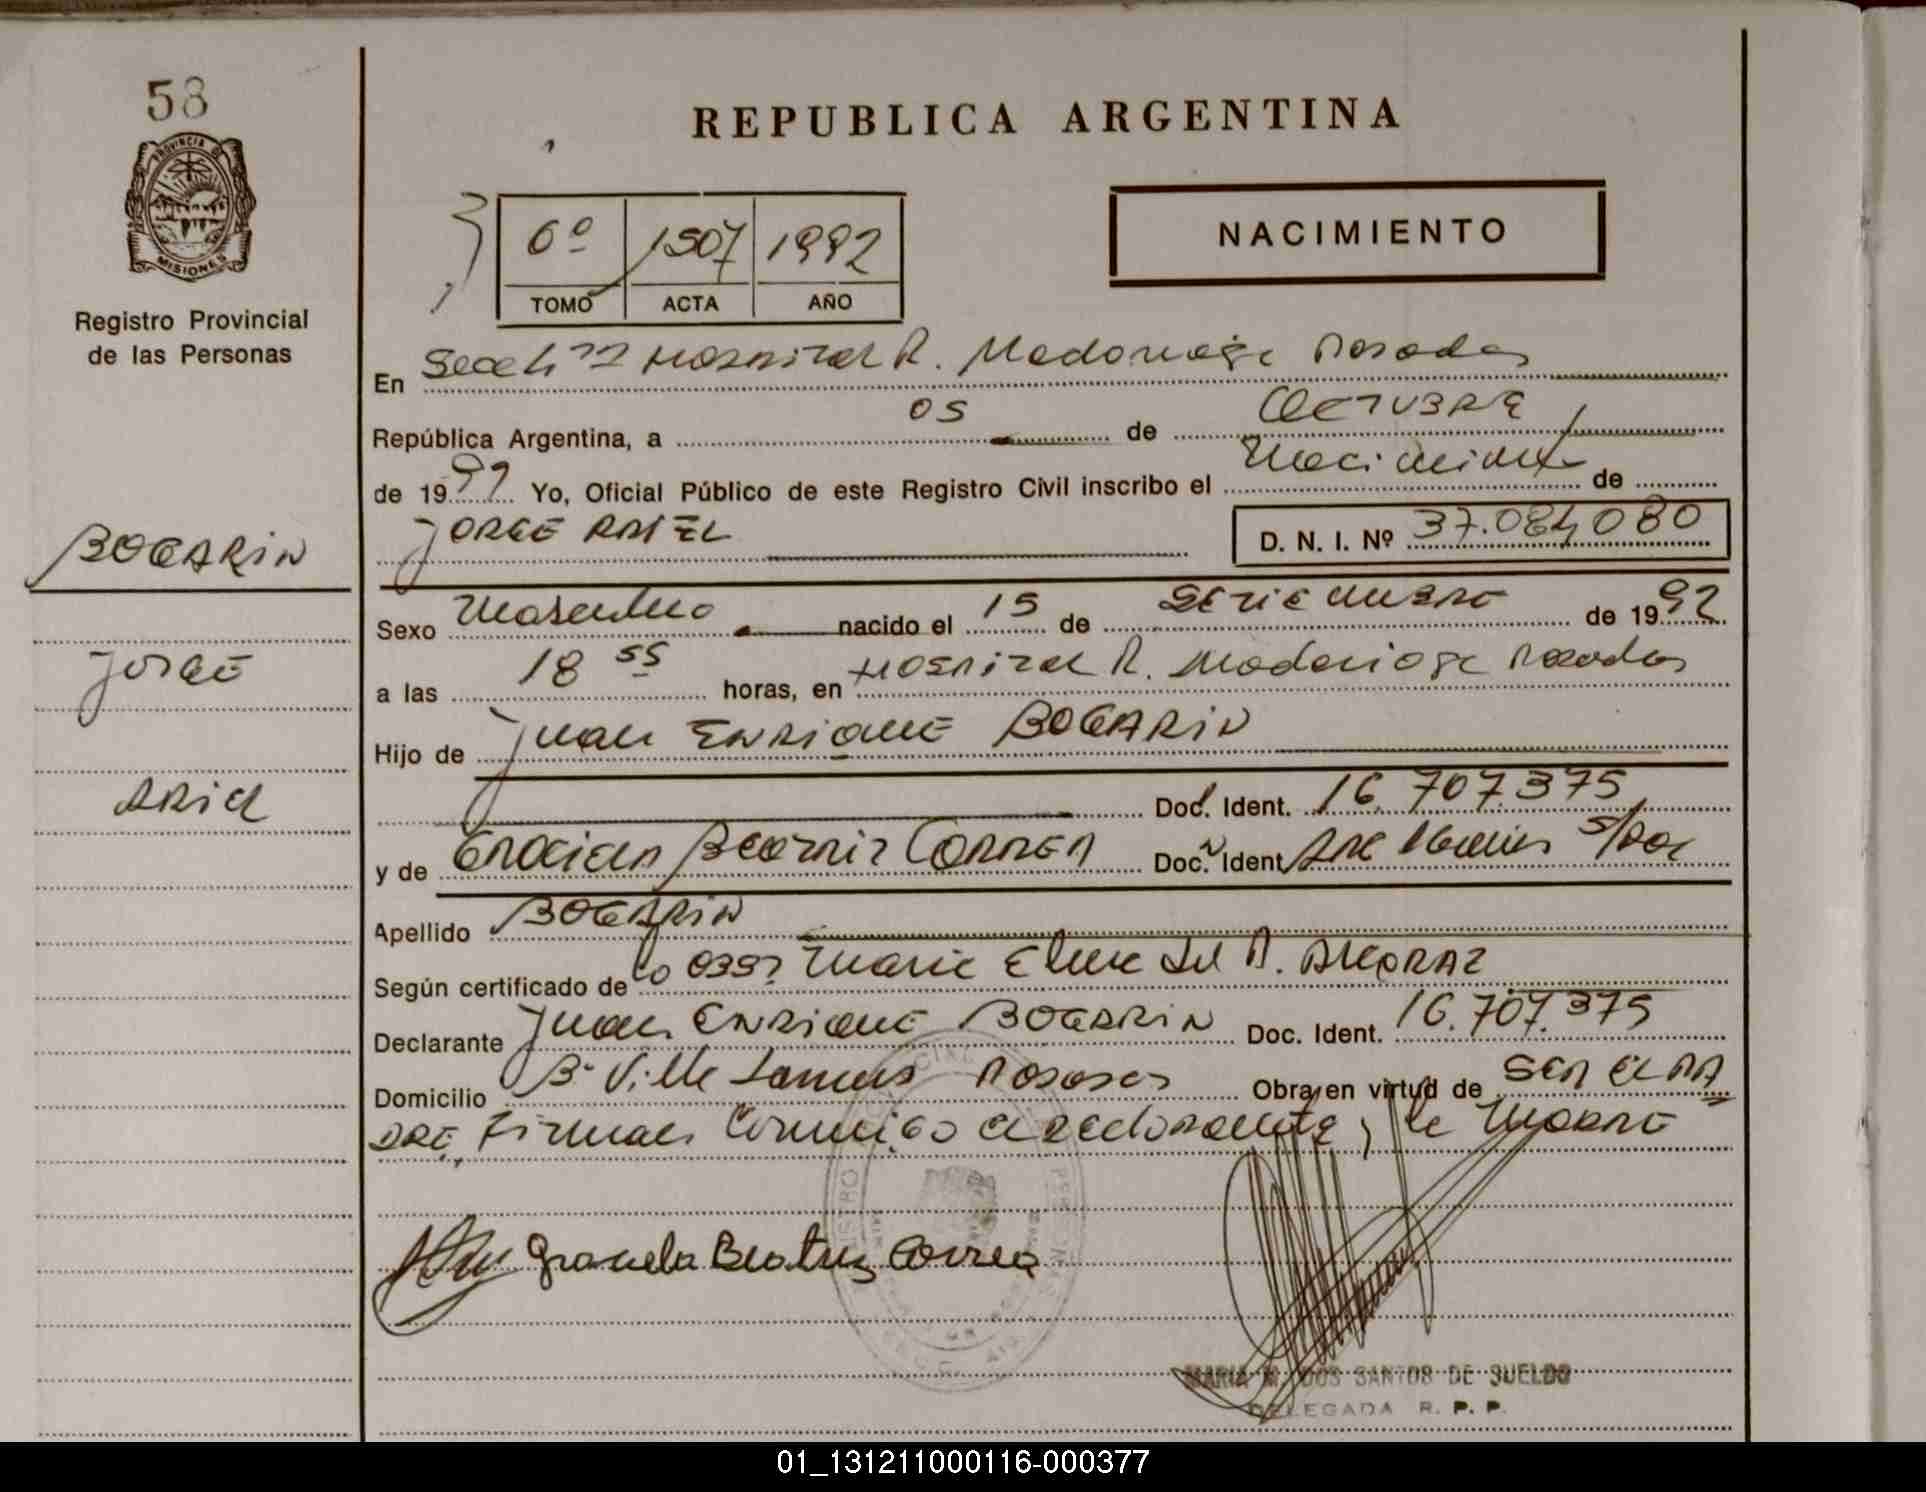 58
REPUBLICA ARGENTINA
PROVINCIA D
MISIONES
Registro Provincial
de las Personas
6º 1507 1992
TOMO ACTA AÑO
NACIMIENTO
En Hospital R. Madariaga Posadas
República Argentina, a 05 de OCTUBRE
de 1992 Yo, Oficial Público de este Registro Civil inscribo el Nacimiento de
JORGE ARIEL D. N. I. Nº 37.084080
BOGARIN
JORGE
ARIEL
Sexo Masculino nacido el 15 de SETIEMBRE de 1992
a las 18 55 horas, en Hospital R. Madariaga Posadas
Hijo de Juan ENRIQUE BOGARIN
Doc. Ident. 16.707.375
y de GRACIELA BEATRIZ CORREA Doc. Ident S/Doc
Apellido BOGARIN
Según certificado de Maria Elena del R. ALCORAZ
Declarante Juan ENRIQUE BOGARIN Doc. Ident. 16.707.375
Domicilio Bº Villa Posadas Obra en virtud de SER EL PA
DRE, Firman Conmigo el declarante y la MADRE
Graciela Beatriz Correa
MARIA M. DOS SANTOS DE SUELDO
DELEGADA R. P. P.
01_131211000116-000377